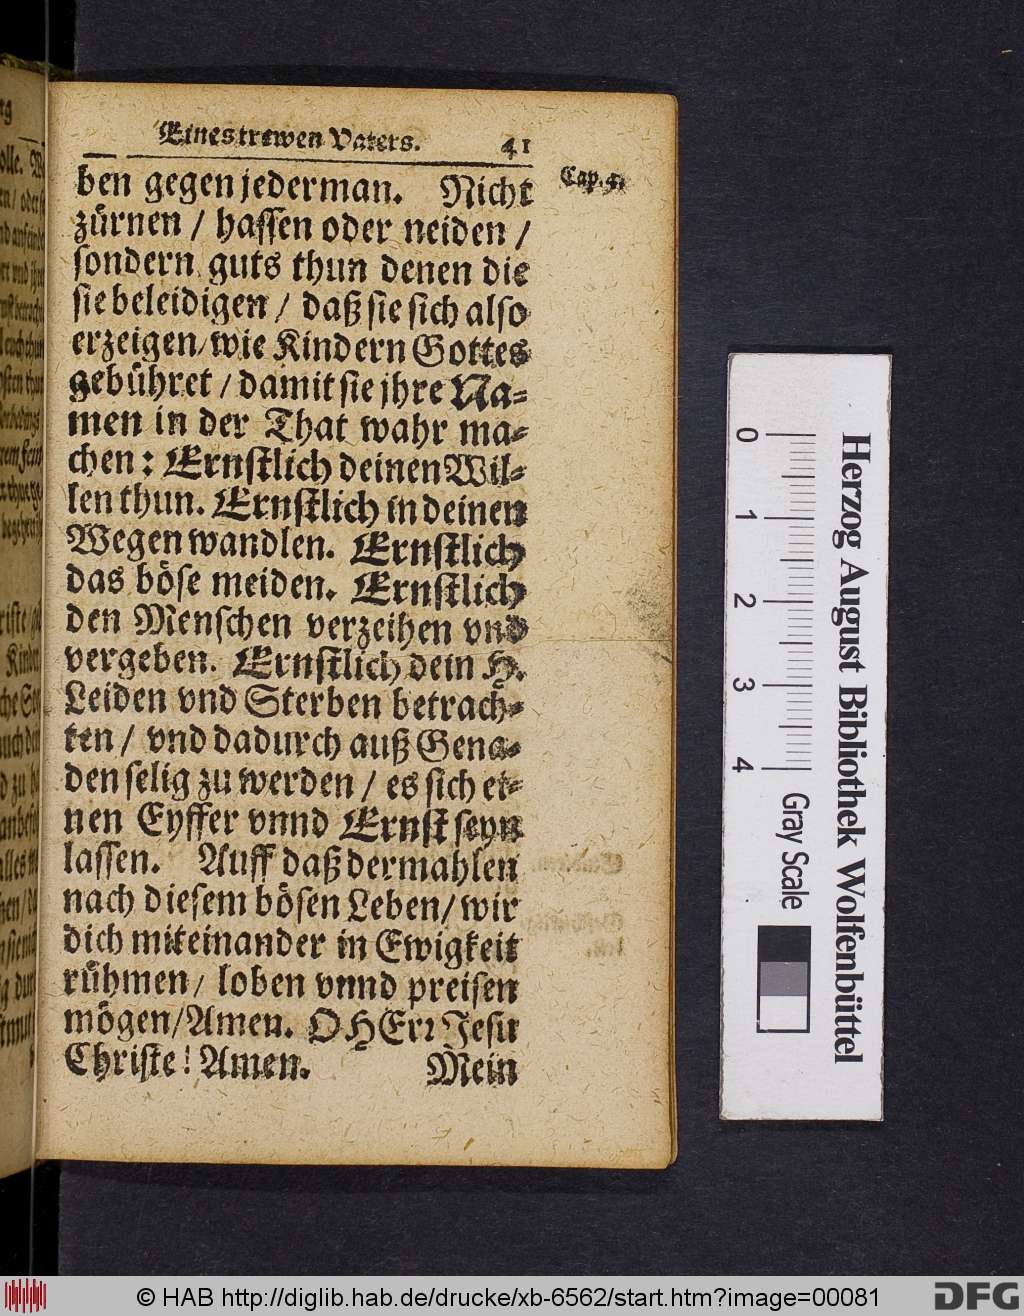 Eines trewen Vaters. 41
ben gegen jederman. Nicht
Cap. 5.
zürnen / hassen oder neiden /
sondern guts thun denen die
sie beleidigen / daß sie sich also
erzeigen / wie Kindern Gottes
gebühret / damit sie jhre Na-
men in der That wahr ma-
chen: Ernstlich deinen Wil-
len thun. Ernstlich in deinen
Wegen wandlen. Ernstlich
das böse meiden. Ernstlich
den Menschen verzeihen vnd
vergeben. Ernstlich dein H.
Leiden vnd Sterben betrach-
ten / vnd dadurch auß Gena-
den selig zu werden / es sich ei-
nen Eyffer vnnd Ernst seyn
lassen. Auff daß dermahlen
nach diesem bösen Leben / wir
dich miteinander in Ewigkeit
rühmen / loben vnnd preisen
mögen / Amen. O HErr Jesu
Christe! Amen. Mein
Herzog August Bibliothek Wolfenbüttel
0 1 2 3 4
Gray Scale
© HAB http://diglib.hab.de/drucke/xb-6562/start.htm?image=00081
DFG